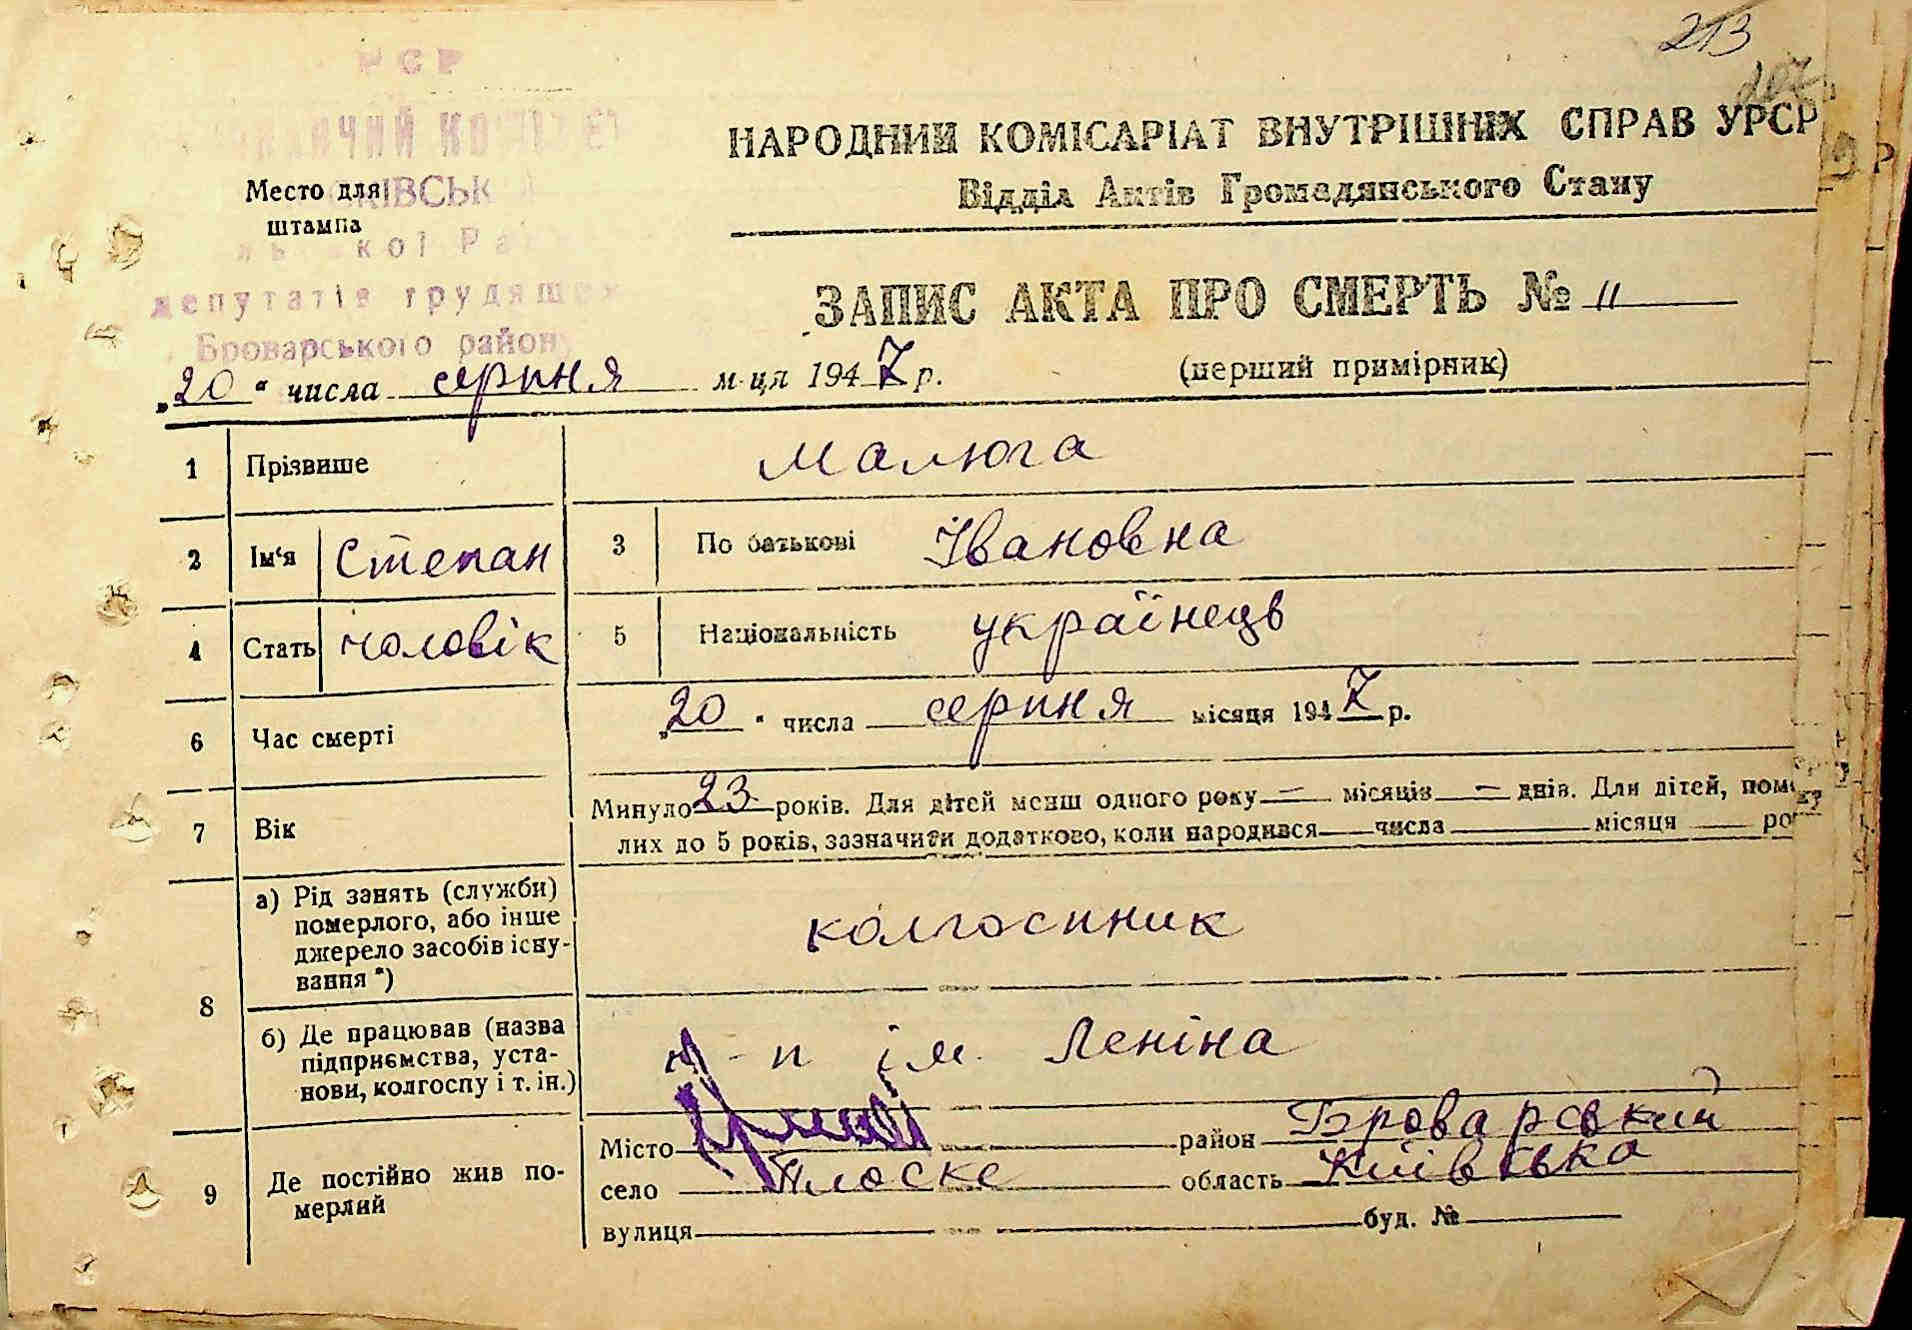 213
РСР
НАРОДНИЙ КОМІСАРІАТ ВНУТРІШНІХ СПРАВ УРСР
Відділ Актів Громадянського Стану
Место для
штампа
депутатів трудящих
Броварського району
ЗАПИС АКТА ПРО СМЕРТЬ № 11
(перший примірник)
„20“ числа серпня м-ця 1947 р.
1 Прізвише Малюга
2 Ім‘я Степан 3 По батькові Івановна
4 Стать чоловік 5 Національність українець
6 Час смерті „20“ числа серпня місяця 1947 р.
7 Вік Минуло 23 років. Для дітей менш одного року — місяців — днів. Для дітей, поме
лих до 5 років, зазначити додатково, коли народився числа місяця ро
8 а) Рід занять (служби)
померлого, або інше
джерело засобів існу-
вання *)
колгоспник
б) Де працював (назва
підприємства, уста-
нови, колгоспу і т. ін.)
к-п ім. Леніна
9 Де постійно жив по-
мерлий
Місто район Броварський
село Плоске область Київська
вулиця буд. №